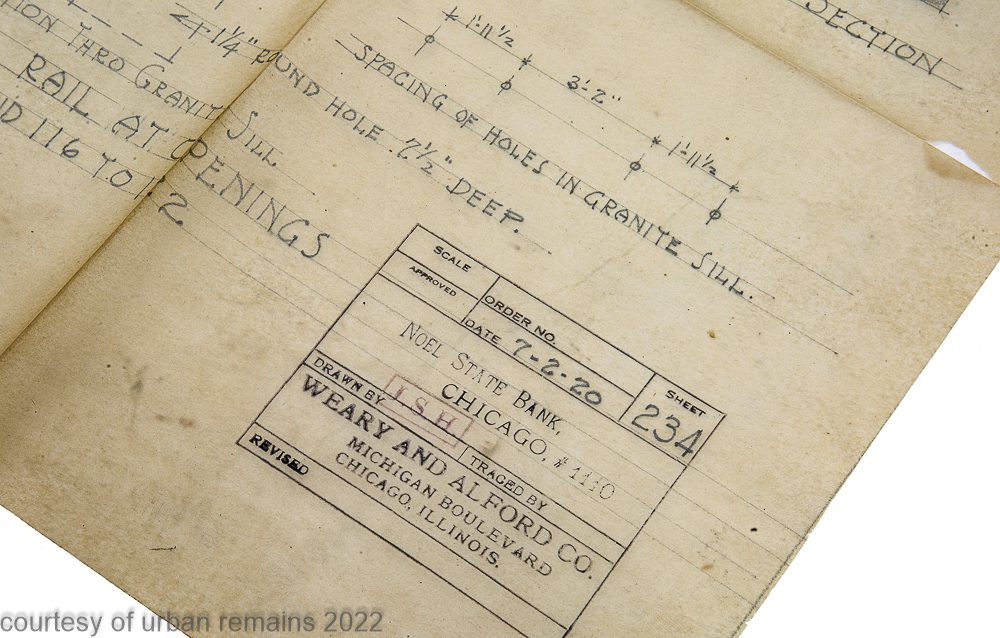 SECTION
1'-11½" 3'-2" 1'-11½"
SPACING OF HOLES IN GRANITE SILL.
1¼" ROUND HOLE 7½" DEEP.
THRO GRANITE SILL
RAIL AT OPENINGS
116 TO 
SCALE
APPROVED
ORDER NO.
DATE 7-2-20
SHEET
234
NOEL STATE BANK,
CHICAGO, #1110
DRAWN BY I S H
TRACED BY
WEARY AND ALFORD CO.
MICHIGAN BOULEVARD
CHICAGO, ILLINOIS.
REVISED
courtesy of urban remains 2022